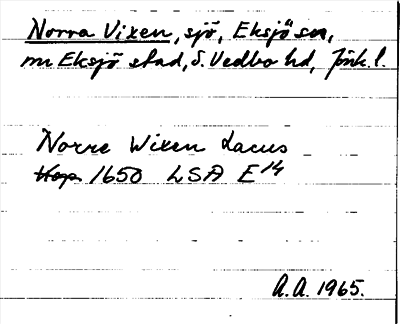 Norra Vixen, sjö, Eksjö sn,
m Eksjö stad, S. Vedbo hd, Jönk. l.
Norre Wixen Lacus
1650 LSA E14
A.A. 1965.